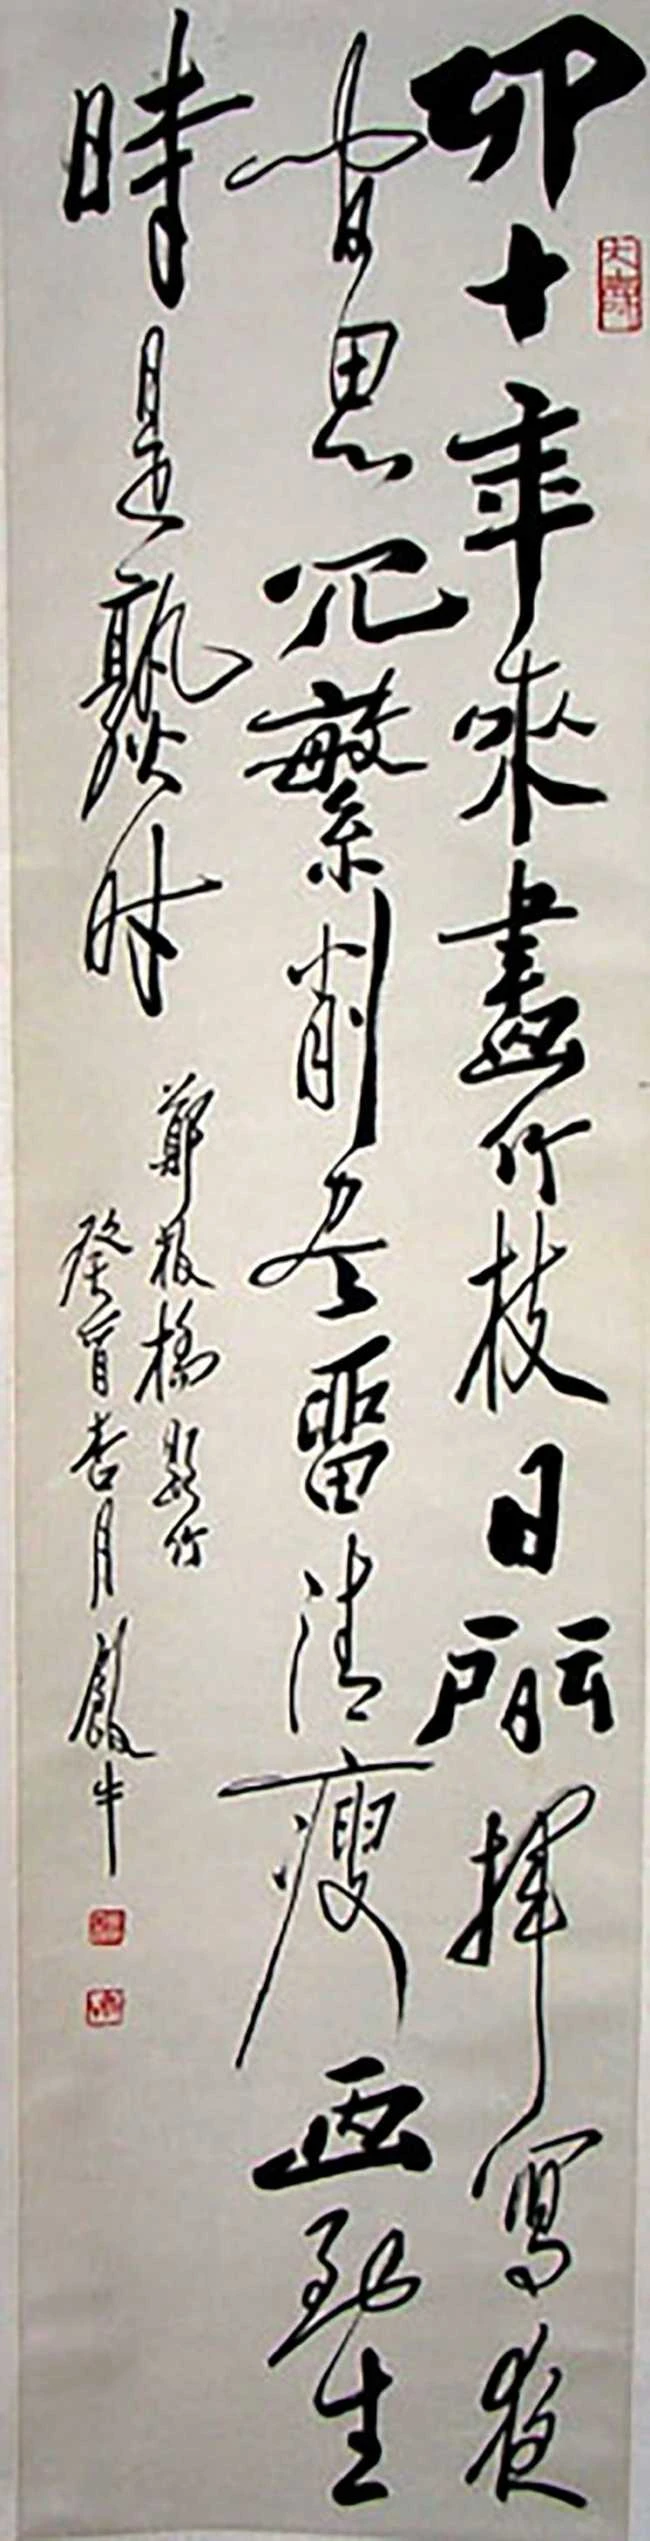 四十年來畫竹枝日間揮寫夜
間思冗繁削盡留清瘦画到生
時是熟時
鄭板橋題竹
癸酉杏月 牛